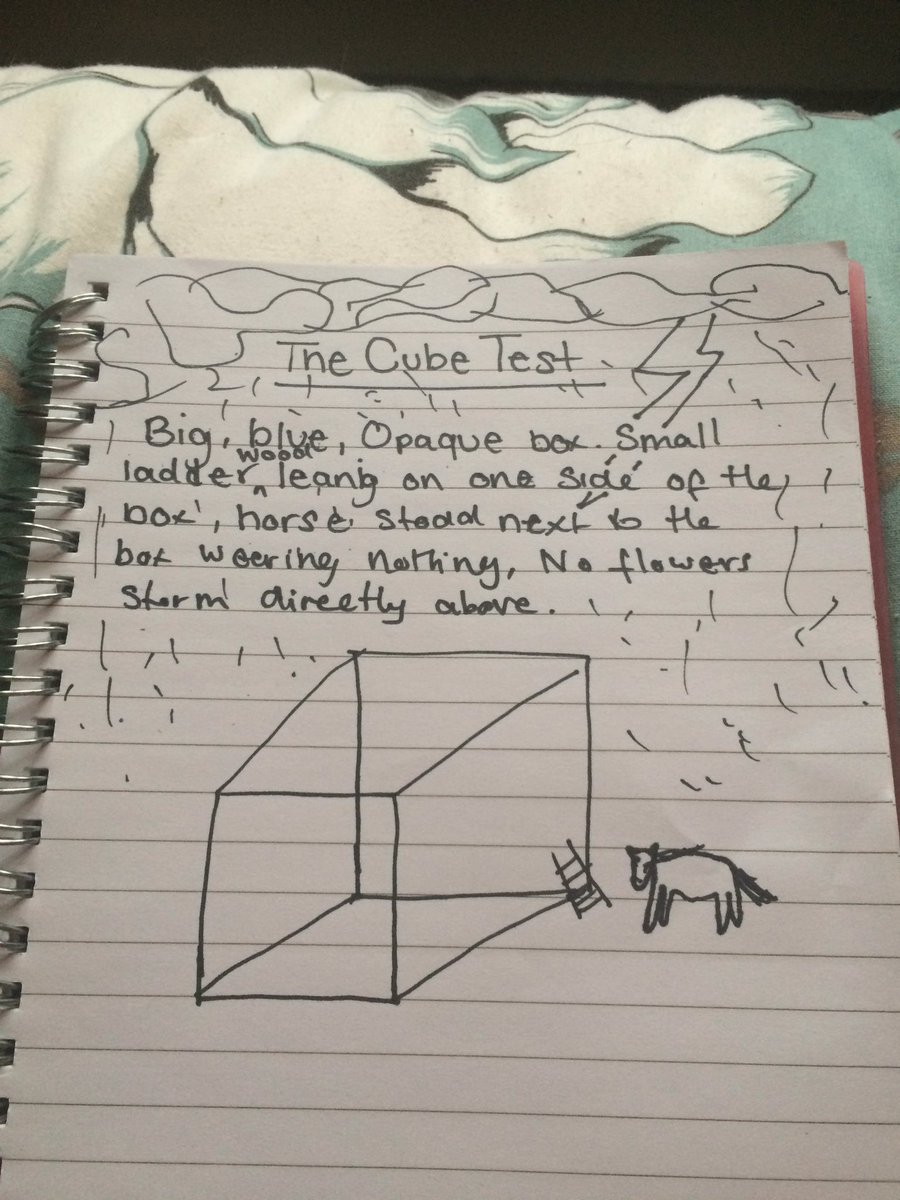 The Cube Test
Big, blue, Opaque box. Small
wood
ladder leanig on one side of the
box, horse stood next to the
box weering nothing, No flowers
storm directly above.